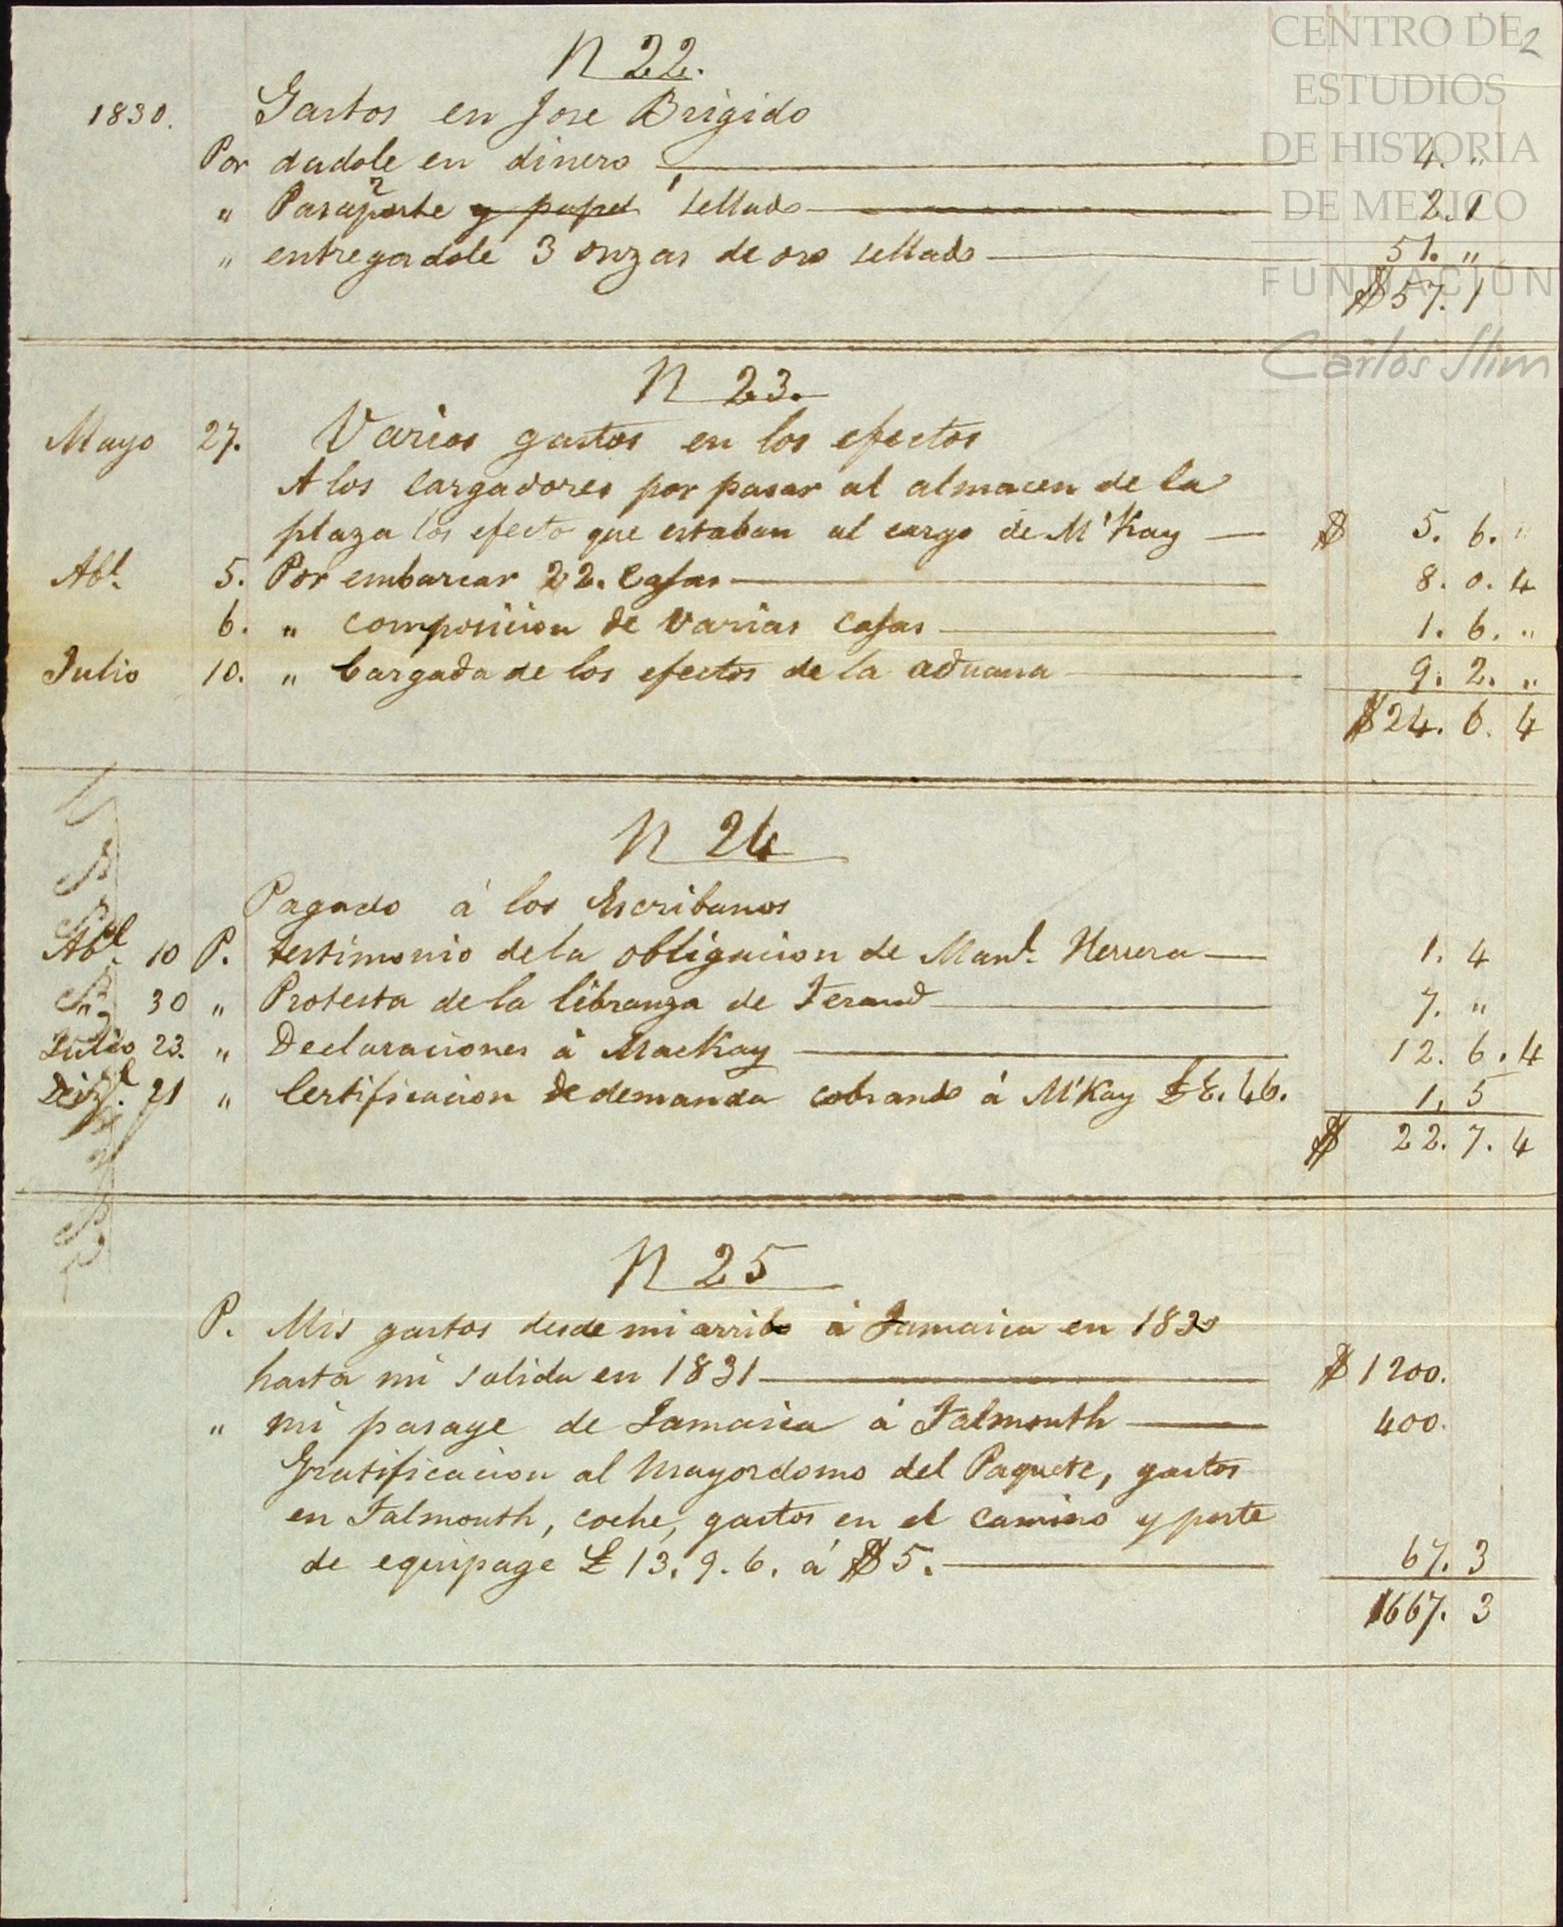 CENTRO DE
ESTUDIOS
DE HISTORIA
DE MEXICO
FUNDACION
Carlos Slim
2
N 22.
1830. Gastos en Jose Brigido
Por dadole en dinero 4. "
" Pasaporte y papel sellado 2. 1
" entregadole 3 onzas de oro sellado 51. "
$ 57. 1
N 23.
Mayo 27. Varios gastos en los efectos
A los cargadores por pasar al almacen de la
plaza los efecto que estaban al cargo de M'Kay $ 5. 6. "
Abl. 5. Por embarcar 22. Cajas 8. 0. 4
6. " composicion de varias cajas 1. 6. "
Julio 10. " Cargada de los efectos de la aduana 9. 2. "
$ 24. 6. 4
N 24
Pagado á los Escribanos
Abl. 10 P. testimonio de la obligacion de Manl. Herrera 1. 4
" 30 " Protesta de la libranza de Feraud 7. "
Julio 23. " Declaraciones á MacKay 12. 6. 4
21 " Certificacion de demanda cobrando á M'Kay 1. 5
$ 22. 7. 4
N 25
P. Mis gastos desde mi arribo á Jamaica en 1830
hasta mi salida en 1831 $ 1200.
" mi pasage de Jamaica á Falmouth 400.
Gratificacion al Mayordomo del Paquete, gastos
en Falmouth, coche, gastos en el camino y porte
de equipage £ 13. 9. 6. á $ 5. 67. 3
1667. 3